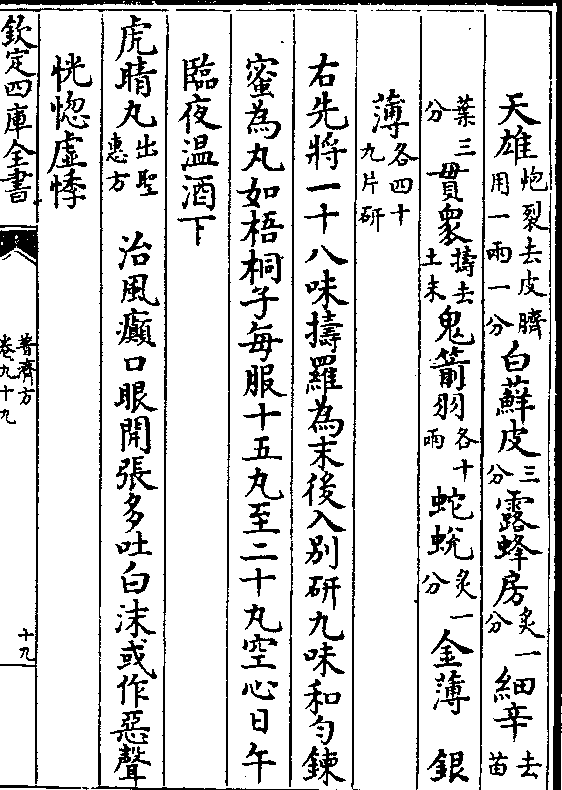 天雄炮裂去皮臍用一兩一分白蘚皮三分露蜂房炙一分細辛去苗
葉三分貫衆擣去土末鬼箭羽各十兩蛇蛻炙一分金薄銀
薄各四十九片研
右先將一十八味擣羅為末後入别研九味和勻鍊
蜜為丸如梧桐子每服十五丸至二十丸空心日午
臨夜温酒下
虎睛丸出聖惠方治風癲口眼開張多吐白沫或作惡聲
恍惚虛悸
欽定四庫全書
普濟方
卷九十九
十九